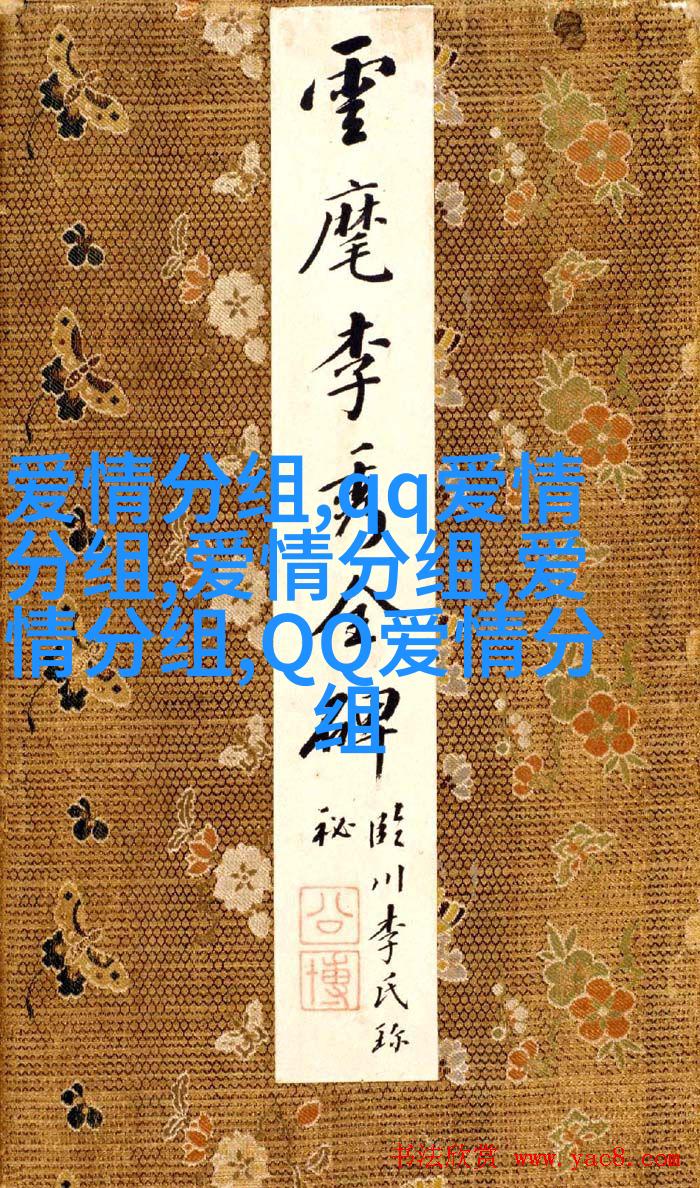 雲麾李秀全碑
臨川李氏珍
秘
公博
爱情分组,qq爱情
分组,爱情分组,爱
情分组,QQ爱情分
组
书法欣赏 www.yac8.com